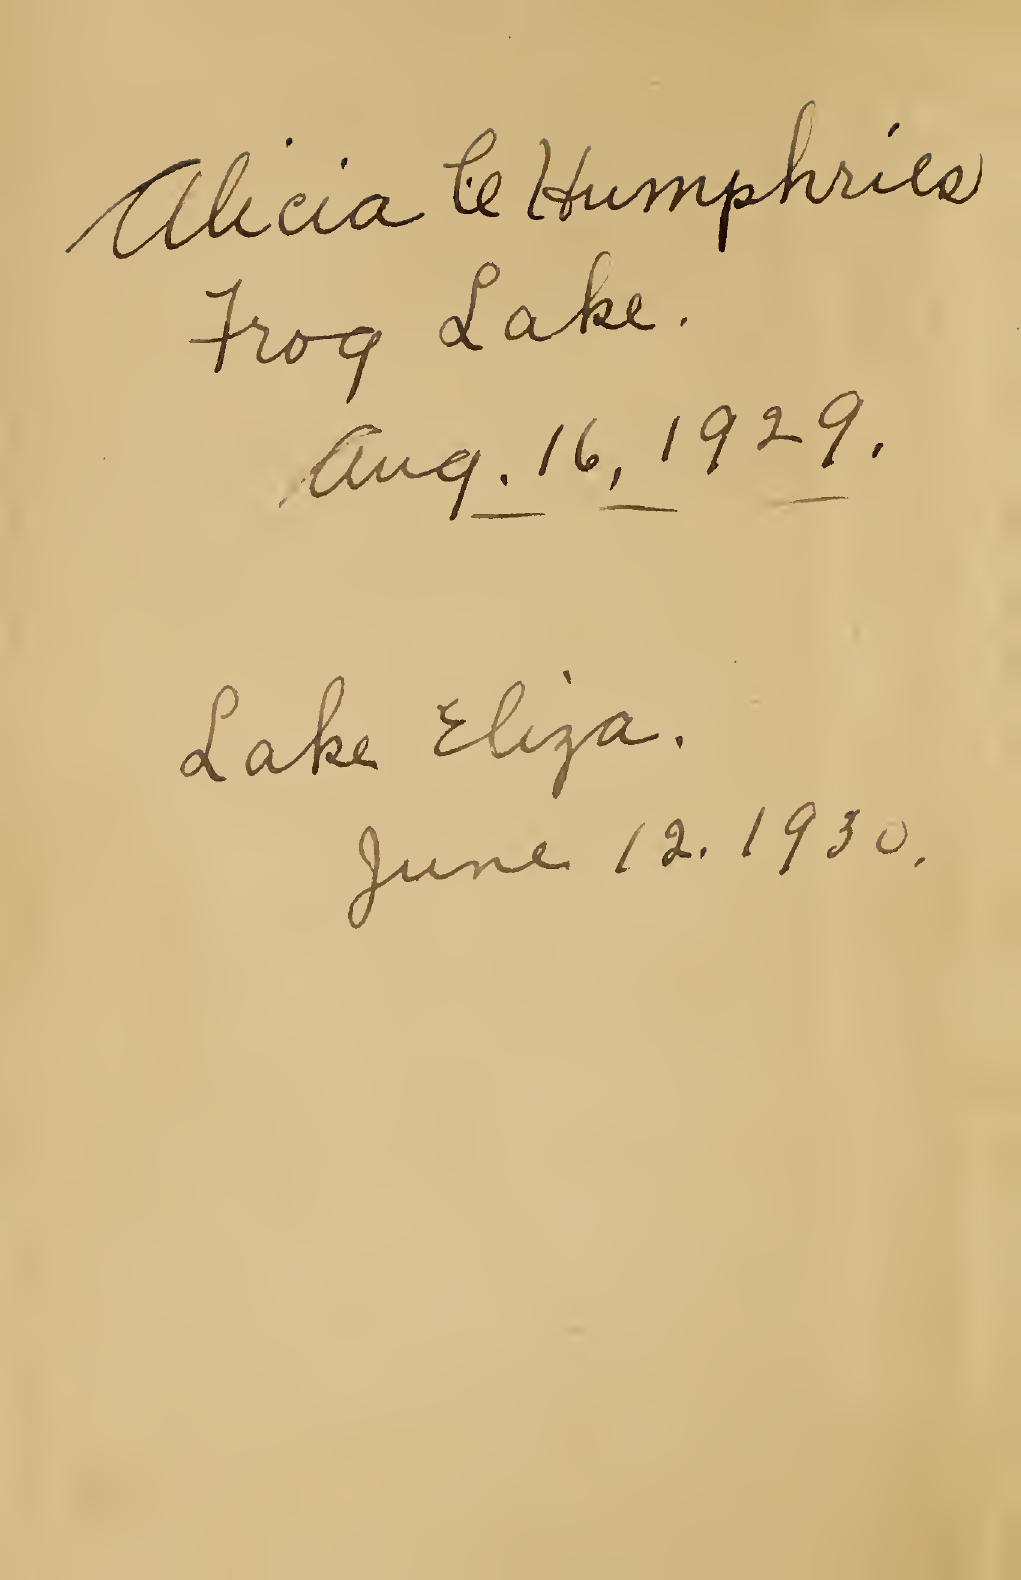 Alicia C Humphries
Frog Lake.
Aug. 16, 1929.
Lake Eliza.
June 12. 1930.